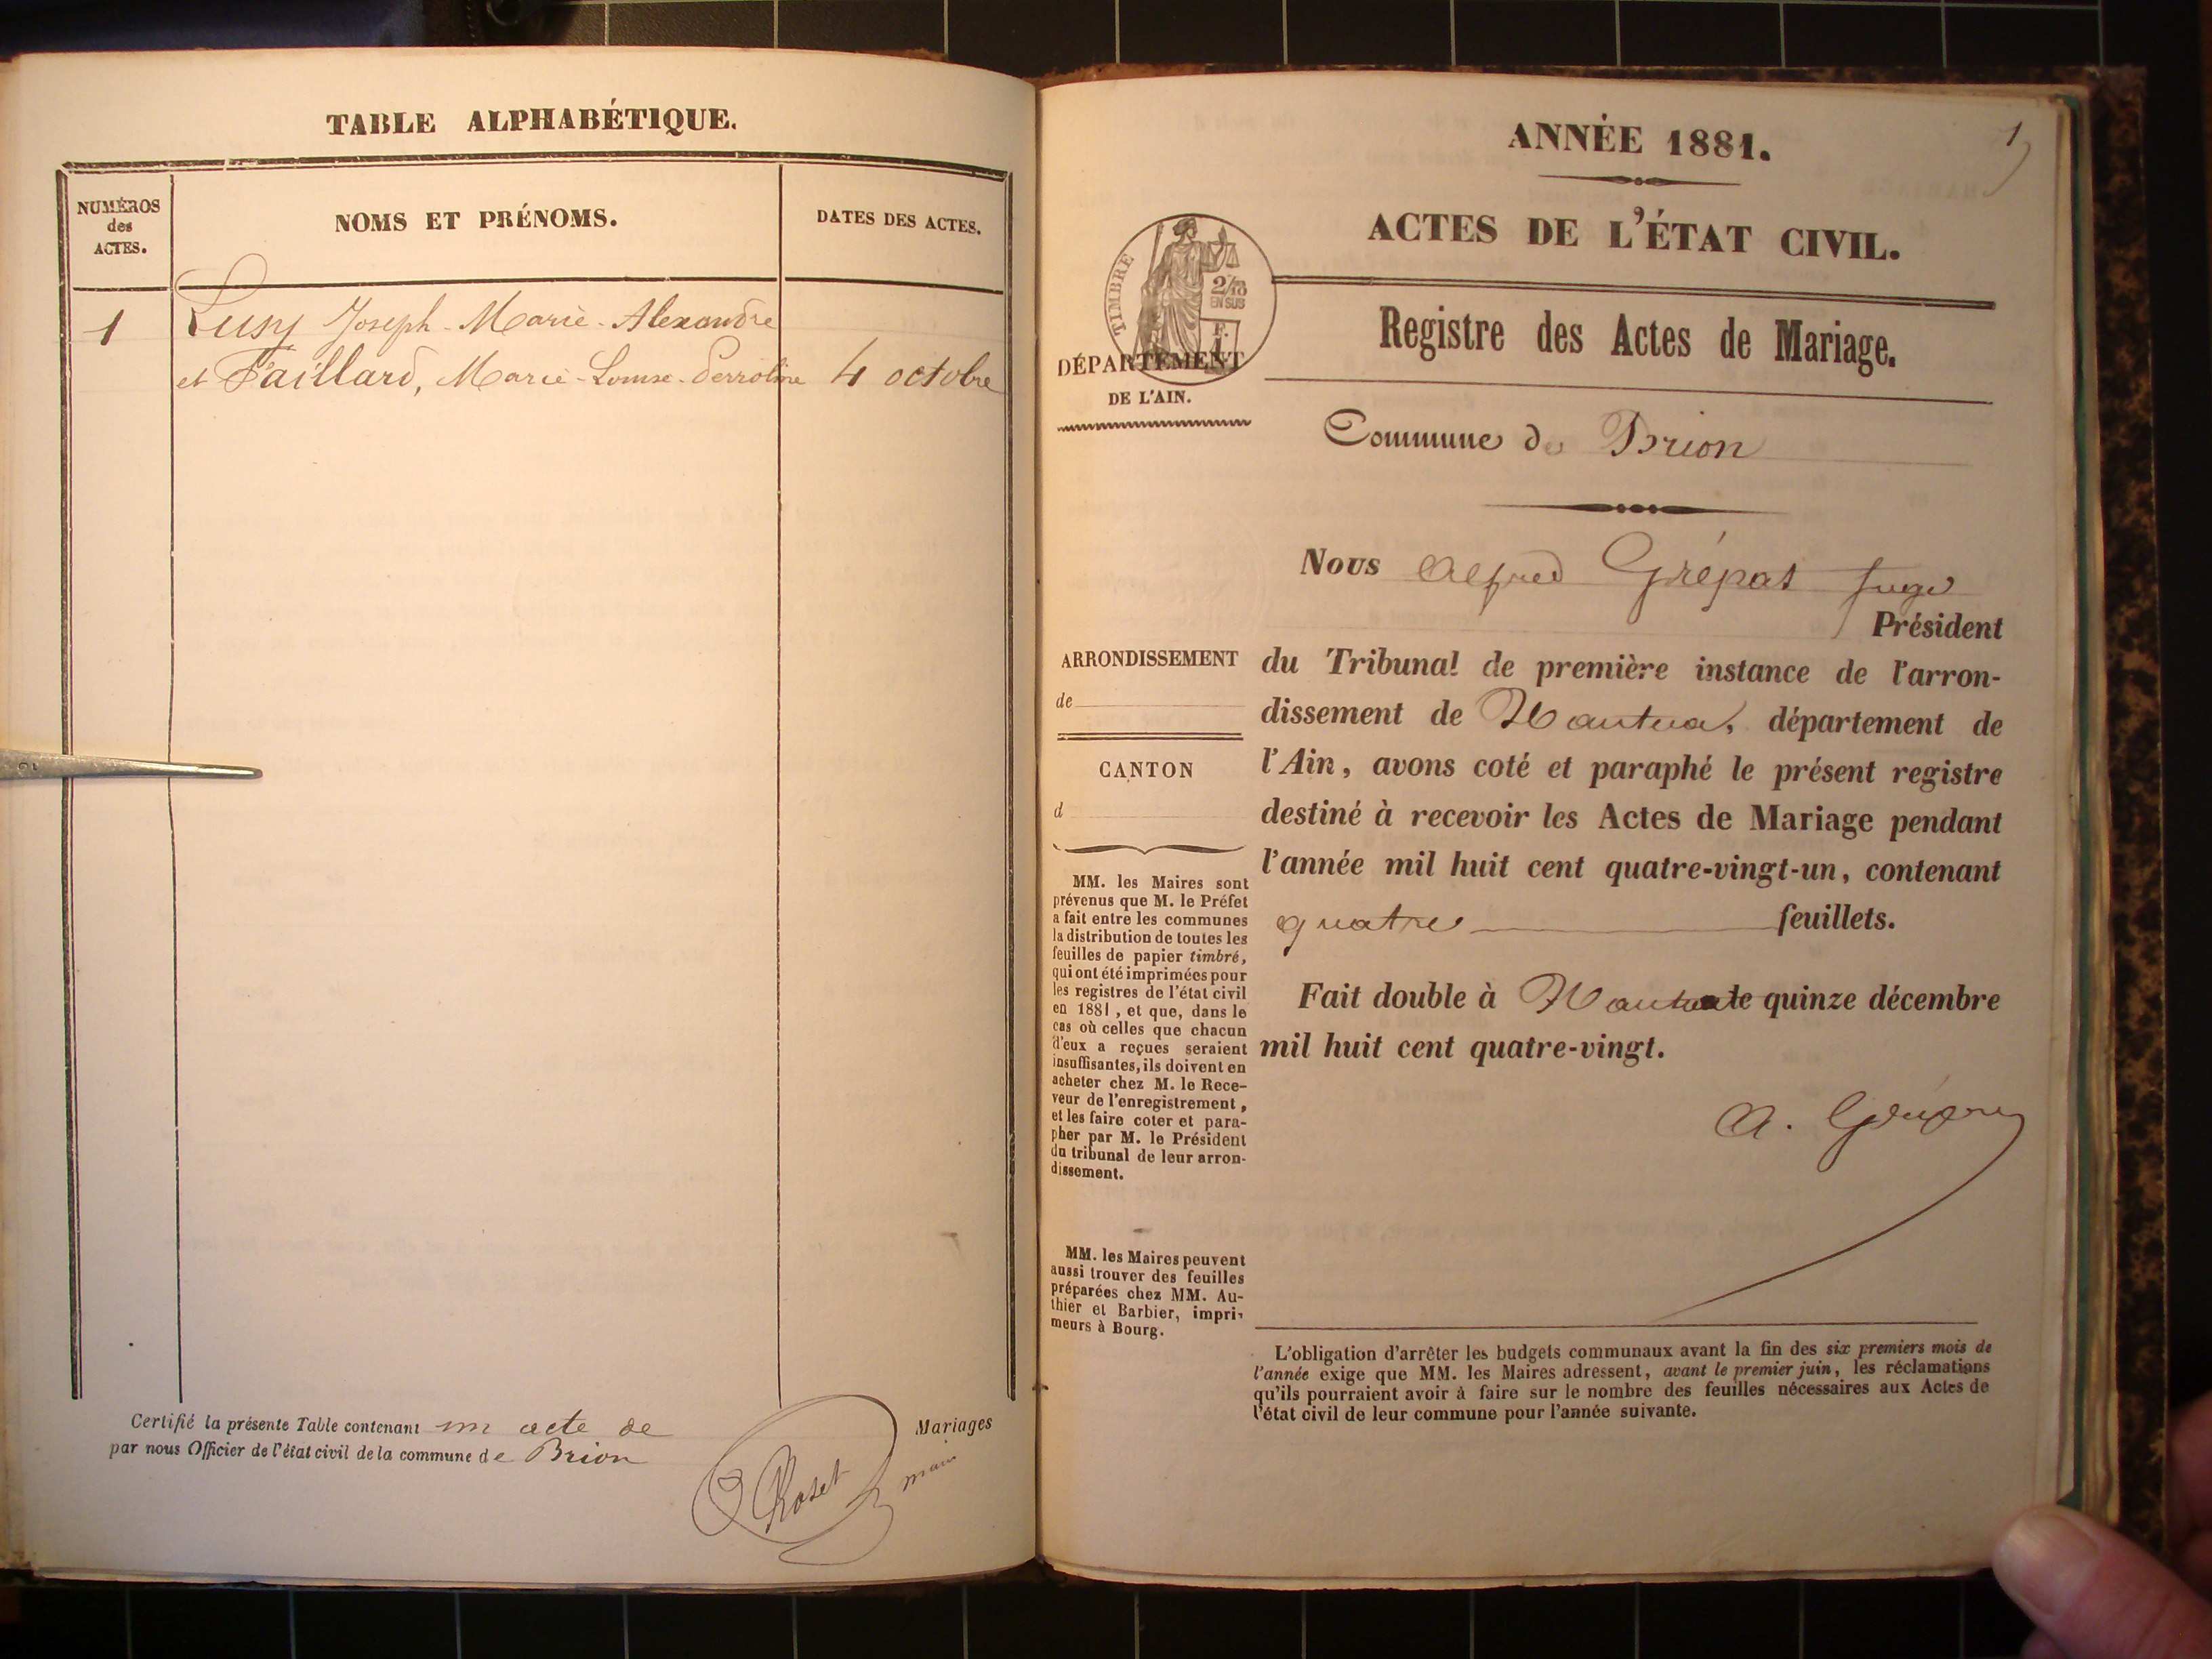 TABLE ALPHABÉTIQUE.
NUMÉROS
des
ACTES.
NOMS ET PRÉNOMS.
DATES DES ACTES.
1
Lusy Joseph-Marie-Alexandre
et Paillard, Marie-Louise-Perroline 4 octobre
Certifié la présente Table contenant un acte de Mariages
par nous Officier de l'état civil de la commune de Brion
Roset
ANNÉE 1881.
1
ACTES DE L'ÉTAT CIVIL.
TIMBRE
2/10
EN SUS
F.
Registre des Actes de Mariage.
DÉPARTEMENT
DE L'AIN.
Commune de Brion
Nous Alfred Grépat Juge
Président
du Tribunal de première instance de l'arron-
dissement de Nantua, département de
l'Ain, avons coté et paraphé le présent registre
destiné à recevoir les Actes de Mariage pendant
l'année mil huit cent quatre-vingt-un, contenant
quatre feuillets.
Fait double à Nantua le quinze décembre
mil huit cent quatre-vingt.
ARRONDISSEMENT
de
CANTON
d
MM. les Maires sont
prévenus que M. le Préfet
a fait entre les communes
la distribution de toutes les
feuilles de papier timbré,
qui ont été imprimées pour
les registres de l'état civil
en 1881, et que, dans le
cas où celles que chacun
d'eux a reçues seraient
insuffisantes, ils doivent en
acheter chez M. le Rece-
veur de l'enregistrement,
et les faire coter et para-
pher par M. le Président
du tribunal de leur arron-
dissement.
MM. les Maires peuvent
aussi trouver des feuilles
préparées chez MM. Au-
thier et Barbier, impri-
meurs à Bourg.
L'obligation d'arrêter les budgets communaux avant la fin des six premiers mois de
l'année exige que MM. les Maires adressent, avant le premier juin, les réclamations
qu'ils pourraient avoir à faire sur le nombre des feuilles nécessaires aux Actes de
l'état civil de leur commune pour l'année suivante.